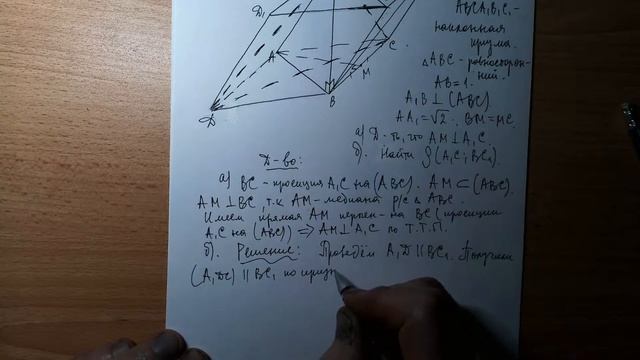 ABCA₁B₁C₁ -
наклонная
призма.
△ABC - равносторон-
ний.
AB = 1.
A₁B ⊥ (ABC).
AA₁ = √2. BM = MC.
а) Д-ть, что AM ⊥ A₁C.
б). Найти ρ(A₁C; BC₁).
D₁
A
C
M
B
D
Д-во:
а) BC - проекция A₁C на (ABC). AM ⊂ (ABC).
AM ⊥ BC, т.к. AM - медиана р/с △ABC.
Имеем прямая AM перпен-на BC (проекции
A₁C на (ABC)) ⇒ AM ⊥ A₁C по Т.Т.П.
б). Решение: Проведём A₁D ∥ BC₁. Получим
(A₁DC) ∥ BC₁ по призн